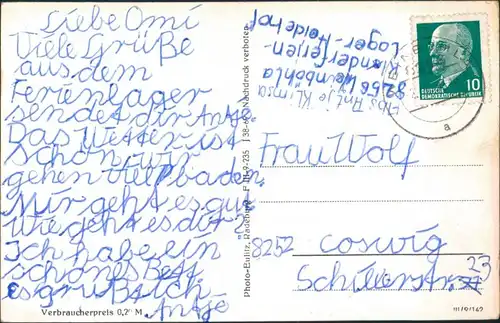 Liebe Omi
Viele Grüße
aus dem
Ferienlager
sendet dir Antje.
Das Wetter ist
schön, wir
gehen viel baden.
Mir geht es gut
wie geht es dir?
Ich habe ein
schönes Bett
es grüßt dich
Antje
Verbraucherpreis 0,2 M
Photo-Eulitz, Radeburg
F III-9-235
Nachdruck verboten
Abs. Antje Klima
8256 Weinböhla
Kinderferien-
lager-Heidehof
DEUTSCHE
DEMOKRATISCHE REPUBLIK
10
a
Frau Wolf
8252 Coswig
Schillerstr. 23
III/9/149